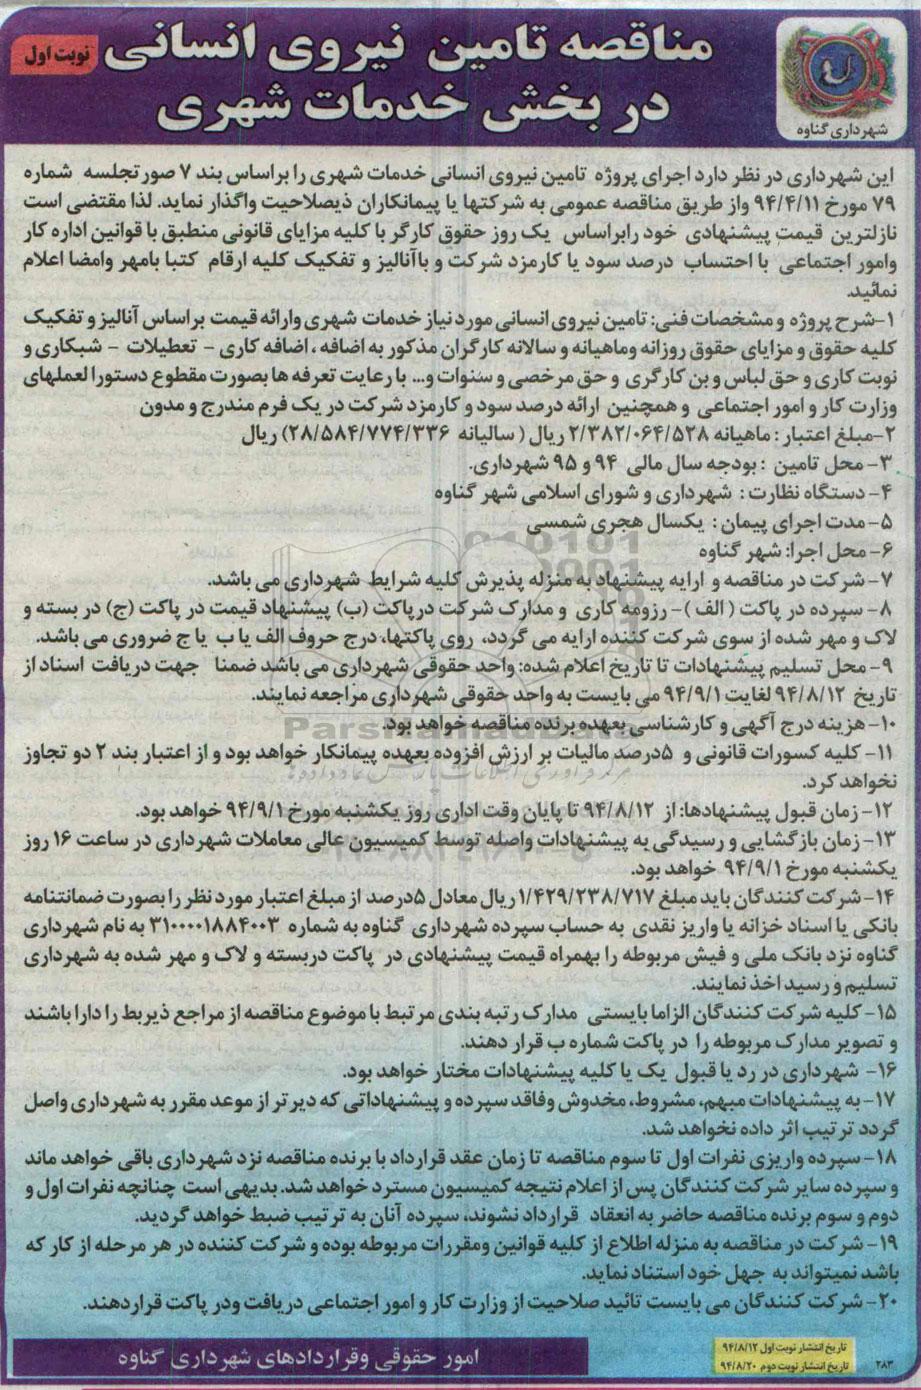 مناقصه تامین نیروی انسانی
در بخش خدمات شهری
نوبت اول
شهرداری گناوه
این شهرداری در نظر دارد اجرای پروژه تامین نیروی انسانی خدمات شهری را براساس بند ۷ صورتجلسه شماره
۷۹ مورخ ۹۴/۴/۱۱ واز طریق مناقصه عمومی به شرکتها یا پیمانکاران ذیصلاحیت واگذار نماید. لذا مقتضی است
نازلترین قیمت پیشنهادی خود رابراساس یک روز حقوق کارگر با کلیه مزایای قانونی منطبق با قوانین اداره کار
وامور اجتماعی با احتساب درصد سود یا کارمزد شرکت و باآنالیز و تفکیک کلیه ارقام کتبا بامهر وامضا اعلام
نمائید.
۱-شرح پروژه و مشخصات فنی: تامین نیروی انسانی مورد نیاز خدمات شهری وارائه قیمت براساس آنالیز و تفکیک
کلیه حقوق و مزایای حقوق روزانه وماهیانه و سالانه کارگران مذکور به اضافه ، اضافه کاری - تعطیلات - شبکاری و
نوبت کاری و حق لباس و بن کارگری و حق مرخصی و سنوات و... با رعایت تعرفه ها بصورت مقطوع دستورا لعملهای
وزارت کار و امور اجتماعی و همچنین ارائه درصد سود و کارمزد شرکت در یک فرم مندرج و مدون
۲-مبلغ اعتبار : ماهیانه ۲/۳۸۲/۰۶۴/۵۲۸ ریال ( سالیانه ۲۸/۵۸۴/۷۷۴/۳۳۶) ریال
۳- محل تامین : بودجه سال مالی ۹۴ و ۹۵ شهرداری.
۴- دستگاه نظارت : شهرداری و شورای اسلامی شهر گناوه
۵- مدت اجرای پیمان : یکسال هجری شمسی
۶- محل اجرا: شهر گناوه
۷- شرکت در مناقصه و ارایه پیشنهاد به منزله پذیرش کلیه شرایط شهرداری می باشد.
۸- سپرده در پاکت ( الف )- رزومه کاری و مدارک شرکت درپاکت (ب) پیشنهاد قیمت در پاکت (ج) در بسته و
لاک و مهر شده از سوی شرکت کننده ارایه می گردد، روی پاکتها، درج حروف الف یا ب یا ج ضروری می باشد.
۹- محل تسلیم پیشنهادات تا تاریخ اعلام شده: واحد حقوقی شهرداری می باشد ضمنا جهت دریافت اسناد از
تاریخ ۹۴/۸/۱۲ لغایت ۹۴/۹/۱ می بایست به واحد حقوقی شهرداری مراجعه نمایند.
۱۰- هزینه درج آگهی و کارشناسی بعهده برنده مناقصه خواهد بود.
۱۱- کلیه کسورات قانونی و ۵درصد مالیات بر ارزش افزوده بعهده پیمانکار خواهد بود و از اعتبار بند ۲ دو تجاوز
نخواهد کرد.
۱۲- زمان قبول پیشنهادها: از ۹۴/۸/۱۲ تا پایان وقت اداری روز یکشنبه مورخ ۹۴/۹/۱ خواهد بود.
۱۳- زمان بازگشایی و رسیدگی به پیشنهادات واصله توسط کمیسیون عالی معاملات شهرداری در ساعت ۱۶ روز
یکشنبه مورخ ۹۴/۹/۱ خواهد بود.
۱۴- شرکت کنندگان باید مبلغ ۱/۴۲۹/۲۳۸/۷۱۷ ریال معادل ۵درصد از مبلغ اعتبار مورد نظر را بصورت ضمانتنامه
بانکی یا اسناد خزانه یا واریز نقدی به حساب سپرده شهرداری گناوه به شماره ۳۱۰۰۰۰۱۸۸۴۰۰۳ به نام شهرداری
گناوه نزد بانک ملی و فیش مربوطه را بهمراه قیمت پیشنهادی در پاکت دربسته و لاک و مهر شده به شهرداری
تسلیم و رسید اخذ نمایند.
۱۵- کلیه شرکت کنندگان الزاما بایستی مدارک رتبه بندی مرتبط با موضوع مناقصه از مراجع ذیربط را دارا باشند
و تصویر مدارک مربوطه را در پاکت شماره ب قرار دهند.
۱۶- شهرداری در رد یا قبول یک یا کلیه پیشنهادات مختار خواهد بود.
۱۷- به پیشنهادات مبهم، مشروط، مخدوش وفاقد سپرده و پیشنهاداتی که دیرتر از موعد مقرر به شهرداری واصل
گردد ترتیب اثر داده نخواهد شد.
۱۸- سپرده واریزی نفرات اول تا سوم مناقصه تا زمان عقد قرارداد با برنده مناقصه نزد شهرداری باقی خواهد ماند
و سپرده سایر شرکت کنندگان پس از اعلام نتیجه کمیسیون مسترد خواهد شد. بدیهی است چنانچه نفرات اول و
دوم و سوم برنده مناقصه حاضر به انعقاد قرارداد نشوند، سپرده آنان به ترتیب ضبط خواهد گردید.
۱۹- شرکت در مناقصه به منزله اطلاع از کلیه قوانین ومقررات مربوطه بوده و شرکت کننده در هر مرحله از کار که
باشد نمیتواند به جهل خود استناد نماید.
۲۰- شرکت کنندگان می بایست تائید صلاحیت از وزارت کار و امور اجتماعی دریافت ودر پاکت قراردهند.
تاریخ انتشار نوبت اول ۹۴/۸/۱۲
تاریخ انتشار نوبت دوم ۹۴/۸/۲۰
۲۸۳
امور حقوقی وقراردادهای شهرداری گناوه
ParsNamadData